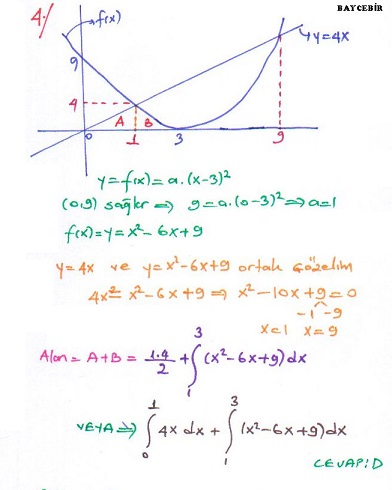 BAYCEBİR
4./
f(x)
y=4x
9
4
A
B
0
1
3
9
y=f(x)=a.(x-3)²
(0,9) sağlar ⇒ 9=a.(0-3)²⇒a=1
f(x)=y=x²-6x+9
y=4x ve y=x²-6x+9 ortak çözelim
4x²=x²-6x+9 ⇒ x²-10x+9=0
-1 -9
x=1 x=9
Alan = A+B = 1.4/2 + ∫₁³ (x²-6x+9)dx
VEYA ⇒ ∫₀¹ 4x dx + ∫₁³ (x²-6x+9)dx
CEVAP: D